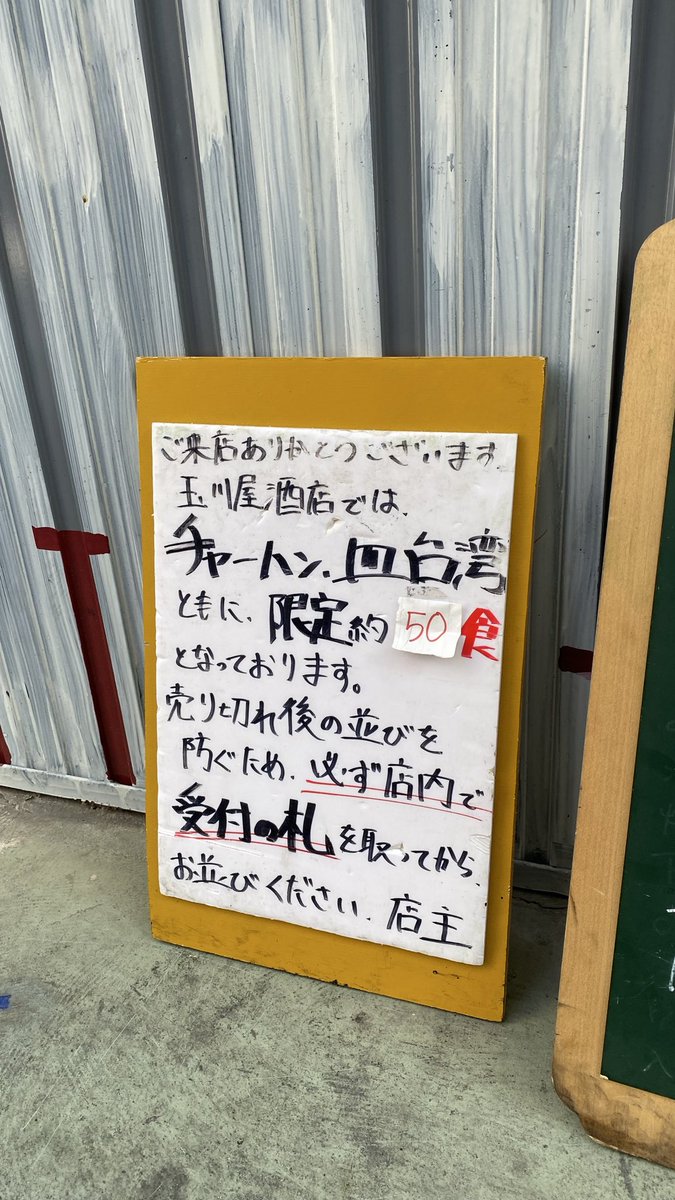 ご来店ありがとうございます。
玉川屋酒店では、
チャーハン、皿台湾
ともに、限定約50食
となっております。
売り切れ後の並びを
防ぐため、必ず店内で
受付の札を取ってから、
お並びください、店主